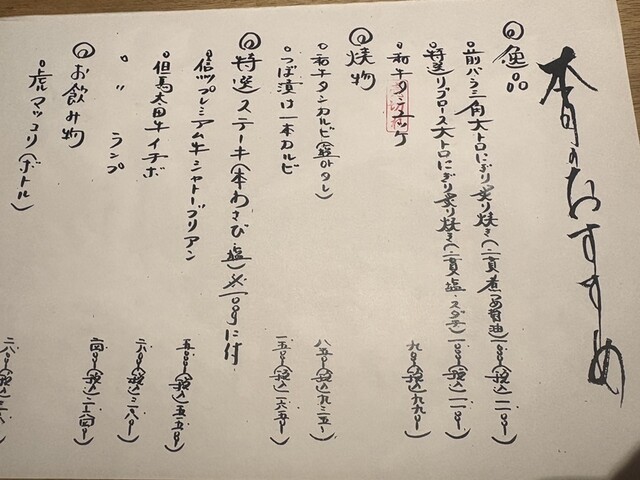 本日のおすすめ
◎逸品
・前バラ三角大トロにぎり炙り焼き(二貫煮つめ醤油)一〇〇〇(税込一一〇〇)
・特選リブロース大トロにぎり炙り焼き(二貫塩・スダチ)一〇〇〇(税込一一〇〇)
・和牛タンユッケ 九〇〇(税込九九〇)
◎焼物
・和牛タンカルビ(タレ) 八五〇(税込九三五)
・つぼ漬け一本カルビ 一五〇〇(税込一六五〇)
◎特選ステーキ(本わさび・塩)※一〇〇gに付
・信州プレミアム牛シャトーブリアン 五〇〇〇(税込五五〇〇)
・但馬太田牛イチボ 二八〇〇(税込三〇八〇)
・〃 ランプ 二四〇〇(税込二六四〇)
◎お飲み物
・虎マッコリ(ボトル) 二八〇〇(税込